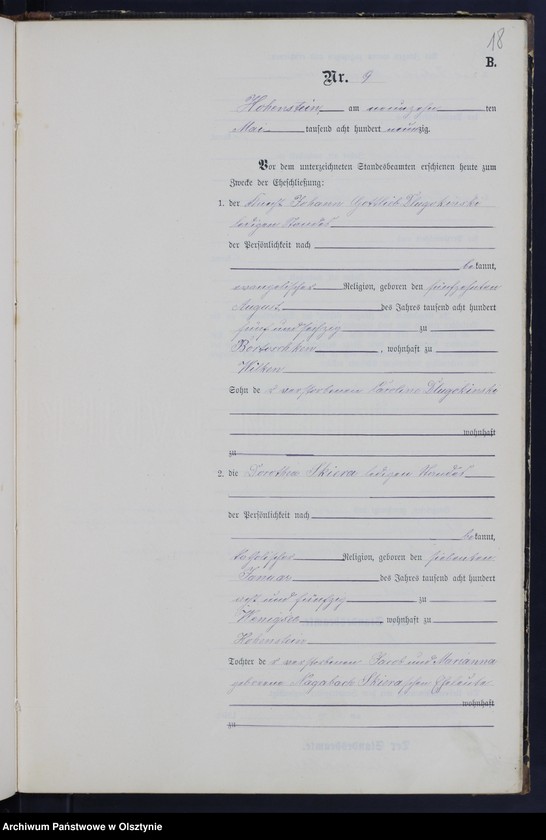 18
B.
Nr. 9
Hohenstein, am neunzehnten
Mai tausend acht hundert neunzig.
Vor dem unterzeichneten Standesbeamten erschienen heute zum
Zwecke der Eheschließung:
1. der Johann Gottlieb Dlugokinski
ledigen Standes
der Persönlichkeit nach
bekannt,
evangelischer Religion, geboren den fünfzehnten
August des Jahres tausend acht hundert
fünf und sechzig zu
, wohnhaft zu
Wilken
Sohn de r verstorbenen Caroline Dlugokinski
wohnhaft
zu
2. die Dorothea Skiera ledigen Standes
der Persönlichkeit nach
bekannt,
katholischer Religion, geboren den siebenten
Januar des Jahres tausend acht hundert
und fünfzig zu
wohnhaft zu
Hohenstein
Tochter de r verstorbenen Jacob und Marianna
geborene Skieraschen Eheleute
wohnhaft
zu
Archiwum Państwowe w Olsztynie